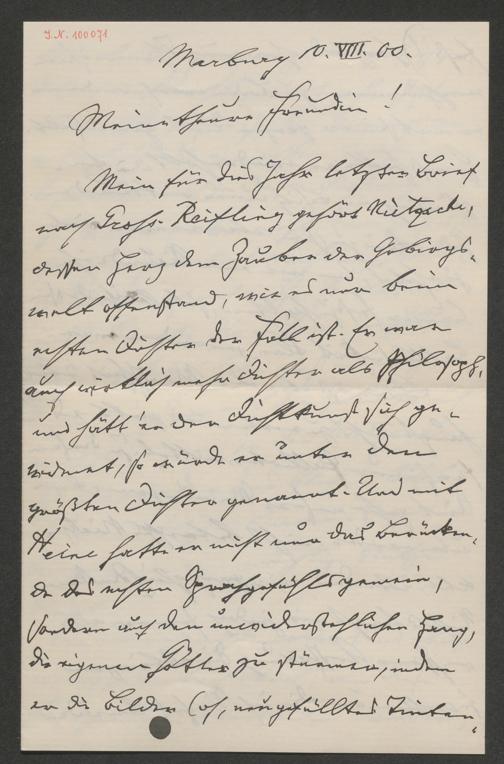 J.N. 100071
Marburg 10. VIII. 00.
Meine theure Freundin!
Mein für dies Jahr letzter Brief
nach Groß-Reifling gehört Nietzsche,
dessen Herz dem Zauber der Gebirgs-
welt offenstand, wie es nur beim
echten Dichter der Fall ist. Er war
auch wirklich mehr Dichter als Philosoph,
und hätt' er der Dichtkunst sich ge-
widmet, so würde er unter den
größten Dichter genannt. Und mit
Heine hatte er nicht nur das Berücken-
de des echten Sprachgefühls gemein,
sondern auch den unwiderstehlichen Hang,
die eigenen Götter zu stürmen, indem
er die Bilder (oh, neugefülltes Tinten-